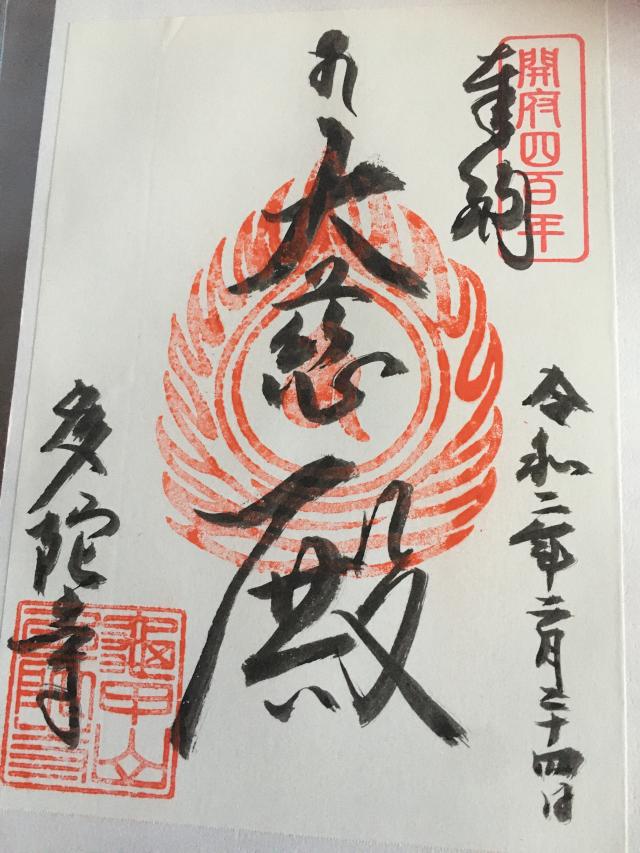 開府四百年
奉納
令和二年二月二十四日
大慈殿
多陀寺
龜甲山